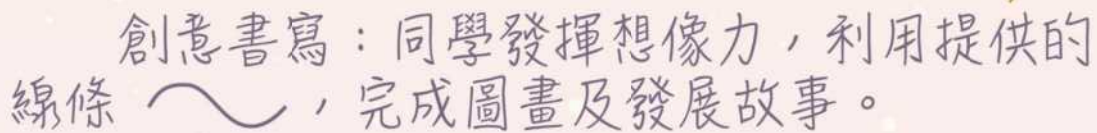 創意書寫：同學發揮想像力，利用提供的
線條 ，完成圖畫及發展故事。